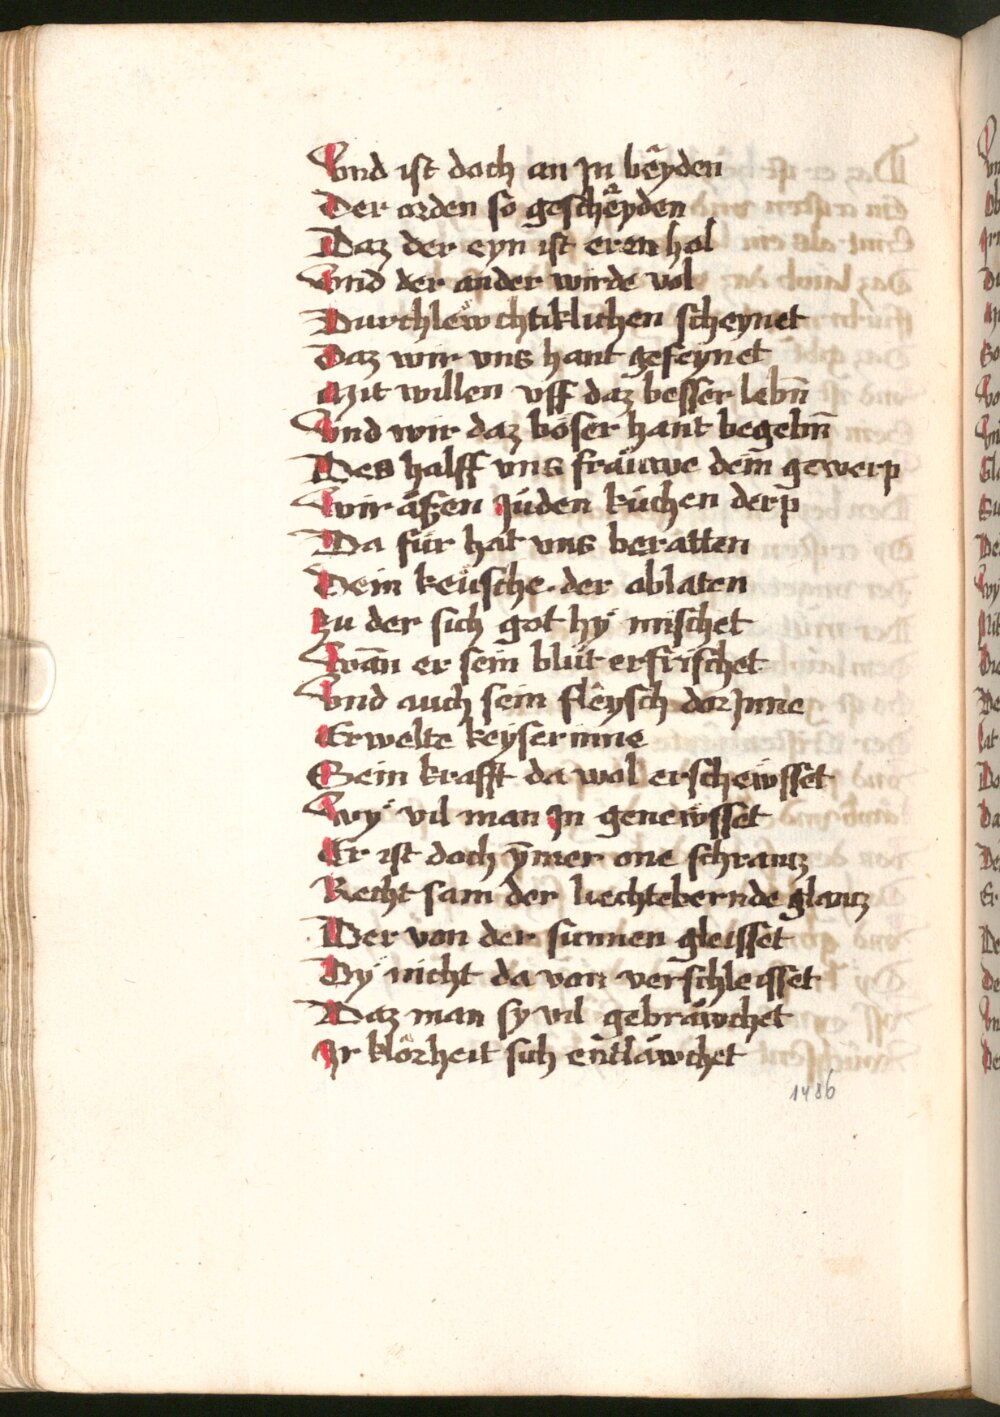 Vnd ist doch an Jn beyden
Der orden so gescheyden
Daz der eyn ist eren hol
Vnd der ander wirde vol
Durchlewchtiklichen scheynet
Daz wir vns hant gefeynet
Mit willen vff daz besser lebn̄
Vnd wir daz böser hant begebn̄
Des halff vns fräuwe dein gewerp
Wir äßen Júden kúchen derp
Da fúr hat vns beratten
Dein keüsche . der ablaten
Zu der sich got hÿ mischet
Wan̄ er sein blüt erfrischet
Vnd auch sein fleysch dor Jnne
Erwelte keyserinne
Sein krafft da wol erschewsset
Wÿ vil man Jn genewsset
Er ist doch ȳmer one schrantz
Recht sam der liechtebernde glantz
Der von der sunnen gleisset
Dÿ nicht da von verschleisset
Daz man sy vil gebräwchet
Jr klorheit sich entläwchet
1486